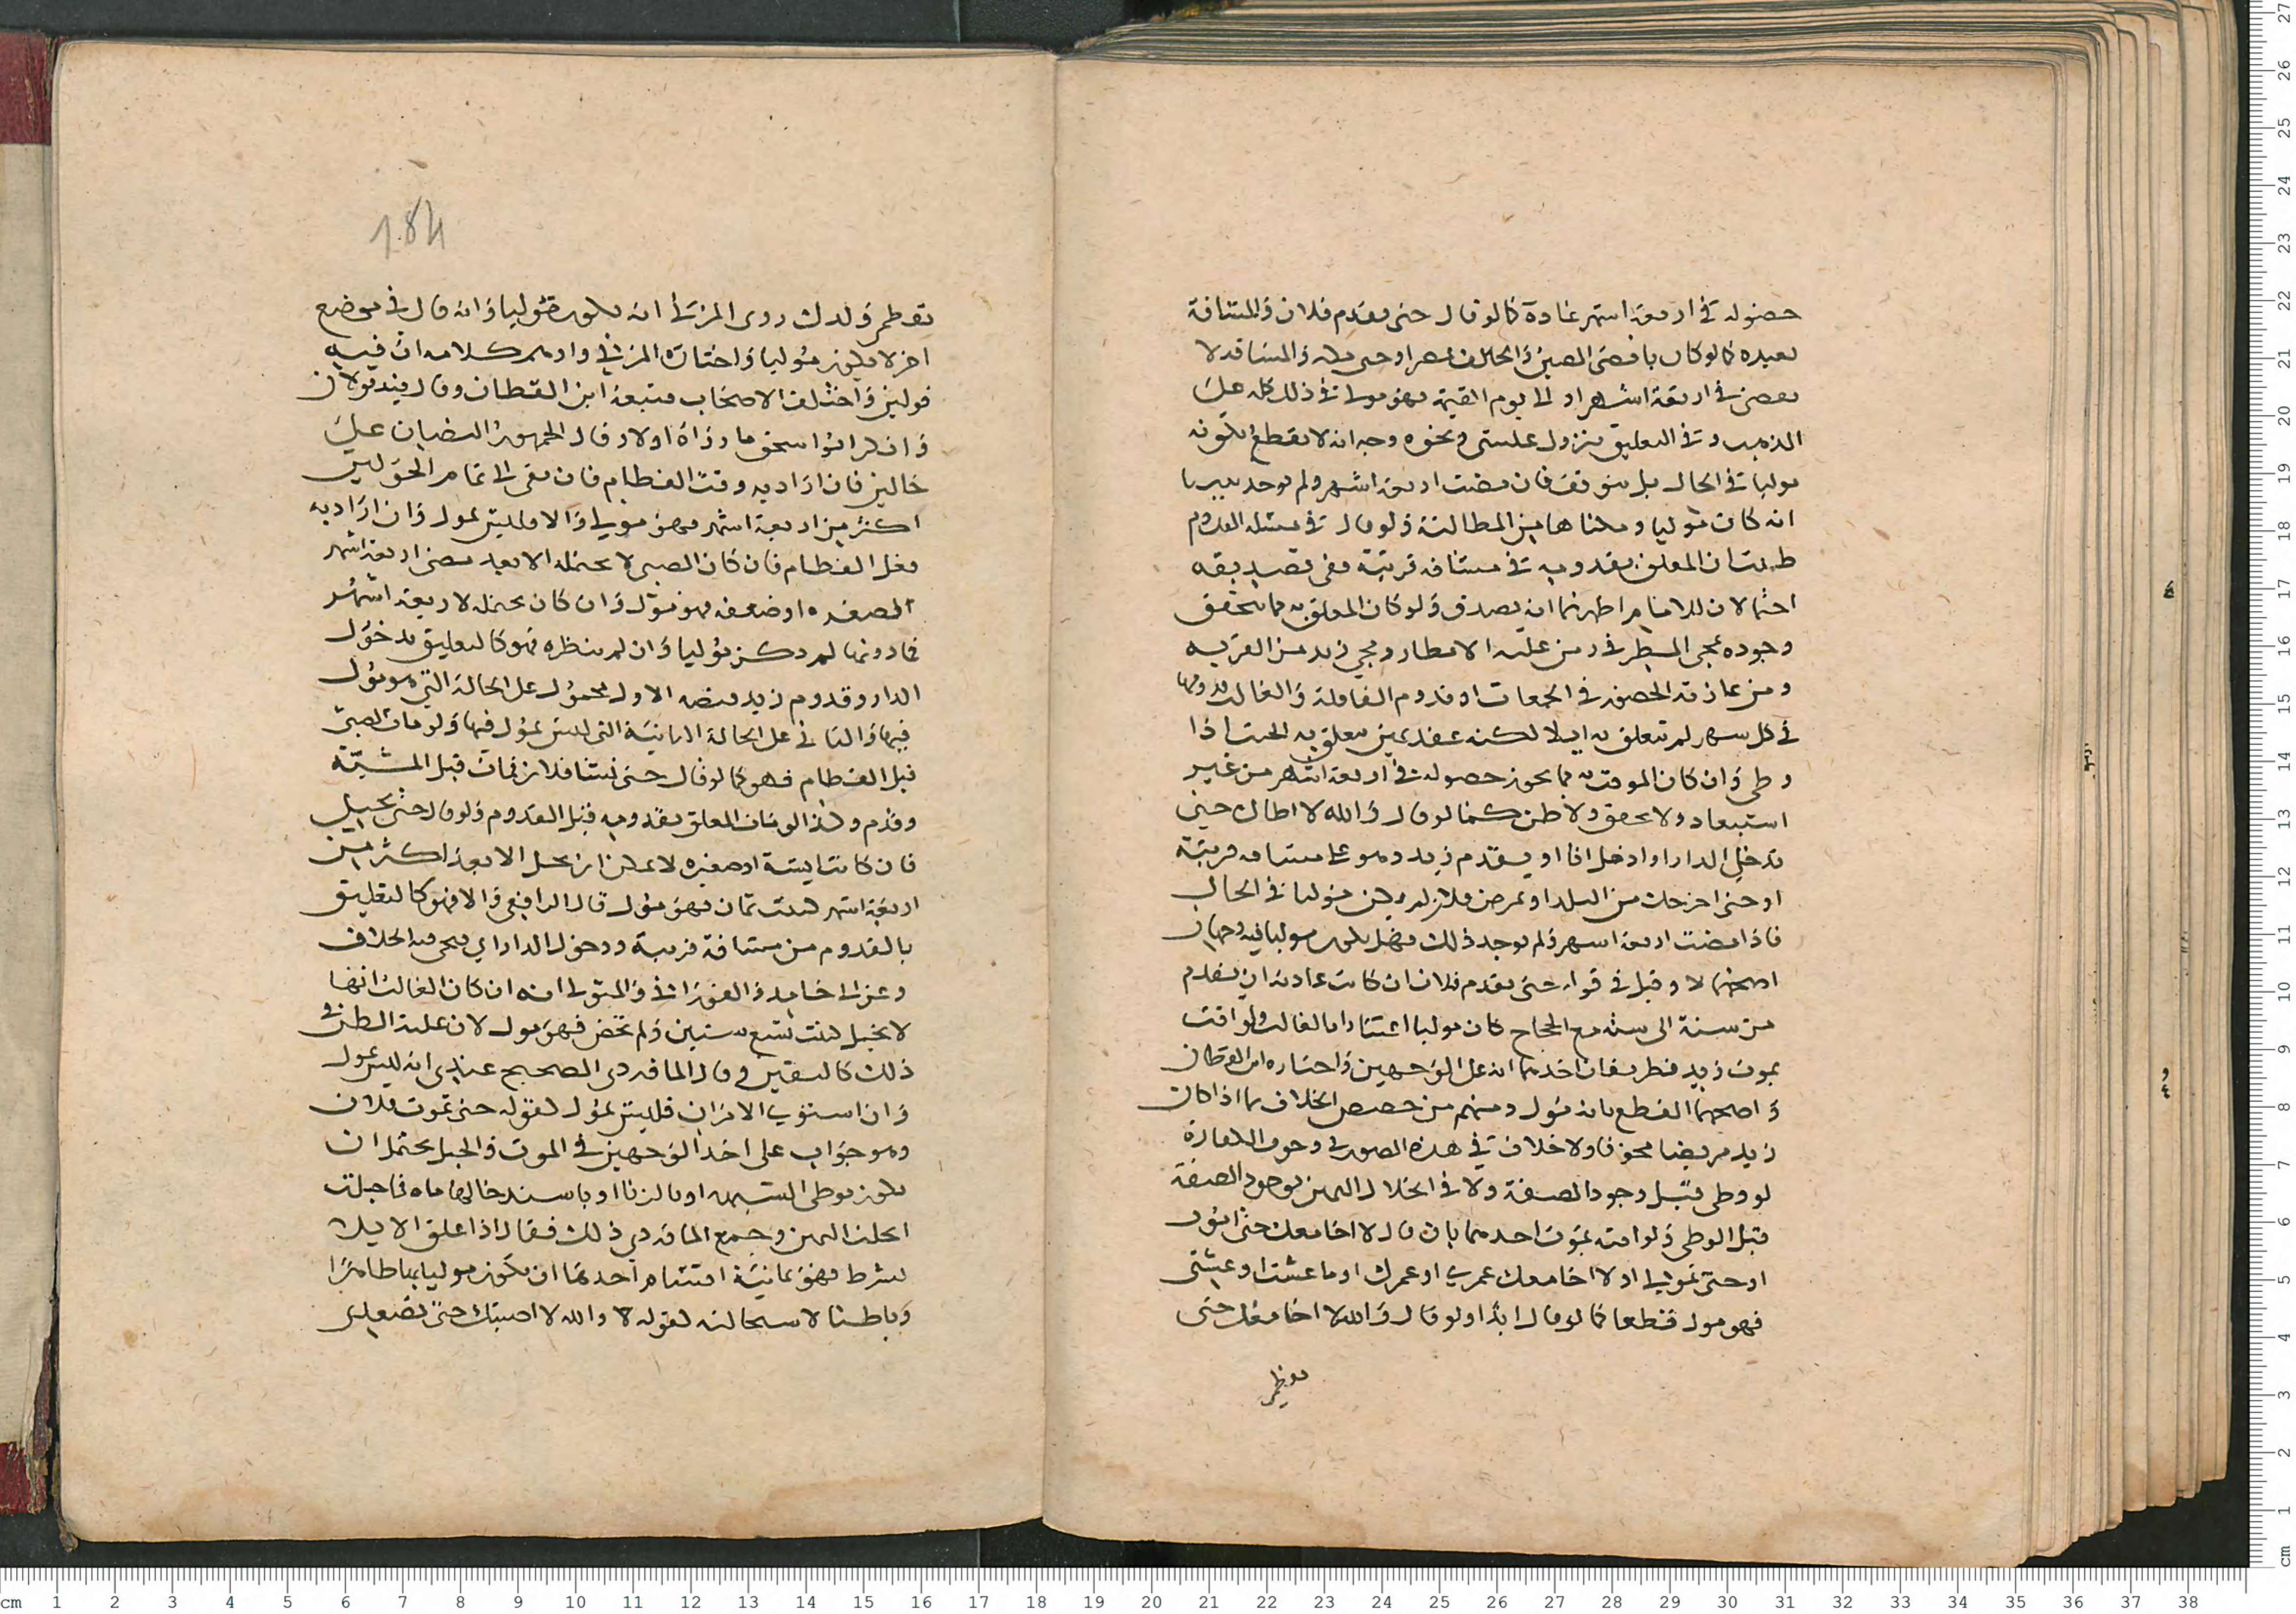 حصوله في اربعة اشهر عادة كما لو قال حتى يقدم فلان والمسافة
بعيده كما لو كان باقصى الصين والحالف بمصر او حتى مكه والمسافه لا
تمضي في اربعة اشهر او الى يوم القيمة فهو مولي في ذلك كله على
المذهب وفي التعليق بنزول عيسى ونحوه وجه انه لا يقطع بكونه
موليا في الحال بل يتوقف فان مضت اربعة اشهر ولم يوجد تبينا
انه كان موليا ومكناها من المطالبة ولو قال في مسئله القدوم
ظننت ان المعلق بقدومه في مسافه قريبة ففي تصديقه
احتمالان للامام اظهرهما انه يصدق ولو كان المعلق به مما يتحقق
وجوده كمجي المطر في زمن غلبه الامطار ومجي زيد من القريه
ومن عادته الحضور في الجمعات او قدوم القافلة والغالب قدومها
في كل شهر لم يتعلق به ايلا لكنه عقد يمين يتعلق به الحنث اذا
وطى وان كان الموقت به مما يجوز حصوله في اربعة اشهر من غير
استبعاد ولا تحقق ولا ظن كما لو قال والله لا اطاك حتى
تدخلي الدار او ادخل انا او يقدم زيد وهو على مسافه قريبة
او حتى اخرجك من البلد او يمرض فلان لم يكن موليا في الحال
فاذا مضت اربعة اشهر ولم يوجد ذلك فهل يكون موليا فيه وجهان
اصحهما لا وقيل في قوله حتى يقدم فلان ان كانت عادته ان يقدم
من سنة الى سنه مع الحجاج كان موليا اعتبارا بالغالب ولو اقت
بموت زيد فطريقان احدهما انه على الوجهين واختاره ابن القطان
واصحهما القطع بانه مول ومنهم من خصص الخلاف بما اذا كان
زيد مريضا مخوفا ولا خلاف في هذه الصور في وجوب الكفارة
لو وطى قبل وجود الصفة ولا في انحلال اليمين بوجود الصفة
قبل الوطى ولو اقته بموت احدهما بان قال لا اجامعك حتى اموت
او حتى تموتي او لا اجامعك عمري او عمرك او ما عشت او عشتي
فهو مول قطعا كما لو قال ابدا ولو قال والله لا اجامعك حتى
تفطمي
184
تفطمي ولدك روى المزني انه يكون موليا وانه قال في موضع
اخر لا يكون موليا واختاره المزني واوهم كلامه ان فيه
قولين واختلف الاصحاب فتبعه ابن القطان وقال فيه قولان
وانكر ابو اسحق ما رواه اولا وقال الجمهور النصان على
حالين فان اراد به وقت الفطام فان بقى الى تمام الحولين
اكثر من اربعة اشهر فهو مولي والا فليس بمول وان اراد به
فعل الفطام فان كان الصبي لا يحتمله الا بعد مضي اربعة اشهر
لصغره او ضعفه فهو مول وان كان يحتمله لاربعة اشهر
فما دونها لم يكن موليا وان لم ينتظره فهو كالتعليق بدخول
الدار وقدوم زيد فنصه الاول محمول على الحالة التي هو مول
فيها والثاني على الحالة الثانية التي ليس بمول فيها ولو مات الصبي
قبل الفطام فهو كما لو قال حتى يشا فلان فمات قبل المشية
وقدم وكذا لو مات المعلق بقدومه قبل القدوم ولو قال حتى تحبلي
فان كانت ايسة او صغيره لا يمكن ان تحبل الا بعد اكثر من
اربعة اشهر كبنت ثمان فهو مول قال الرافعي والا فهو كالتعليق
بالقدوم من مسافة قريبة ودخول الدار اي فيجي فيه الخلاف
وعن ابي حامد والفوراني والمتولي انه ان كان الغالب انها
لا تحبل كبنت تسع سنين ولم تحض فهو مول لان غلبة الظن في
ذلك كاليقين وقال الماوردي الصحيح عندي انه ليس بمول
وان استوى الامران فليس بمول كقوله حتى تموت فلان
وهو جواب على احد الوجهين في الموت والحبل يحتمل ان
يكون بوطى الشبهه او بالزنا او باستدخالها ماه فما حبلت
انحلت اليمين وجمع الماوردي ذلك فقال اذا علق الايلا
بشرط فهو ثمانية اقسام احدها ان يكون موليا بها ظاهرا
وباطنا لاستحالته كقوله لا والله لا اصبتك حتى تصعدي